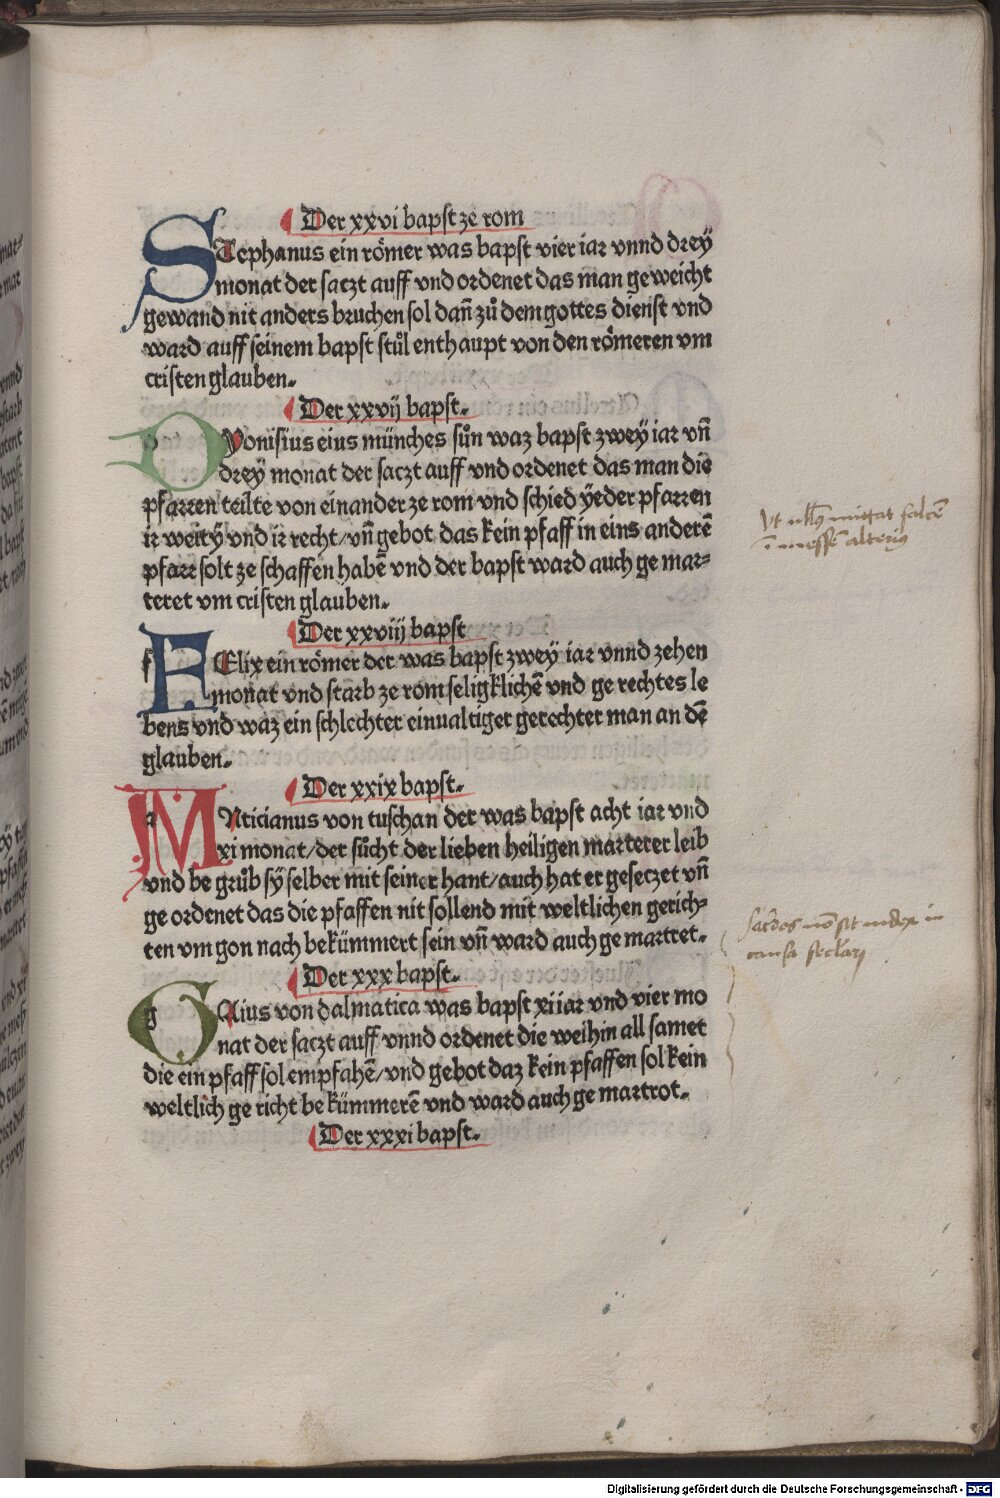 Der xxvi bapst ze rom
STephanus ein römer was bapst vier iar vnnd dreÿ
monat der saczt auff vnd ordenet das man geweicht
gewand nit anders bruchen sol dañ zů dem gottes dienst vnd
ward auff seinem bapst stůl enthaupt von den römeren vm
cristen glauben.
Der xxvij bapst.
DYonisius eius münches sůn waz bapst zwey iar vñ
drey monat der saczt auff vnd ordenet das man die
pfarren teilte von einander ze rom vnd schied ÿeder pfarren
ir weitÿ vnd ir recht/vñ gebot das kein pfaff in eins anderē
pfarr solt ze schaffen habē vnd der bapst ward auch ge mar=
teret vm cristen glauben.
Der xxviij bapst
FElix ein römer der was bapst zwey iar vnnd zehen
monat vnd starb ze rom seligklichē vnd ge rechtes le
bens vnd waz ein schlechter einualtiger gerechter man an dē
glauben.
Der xxix bapst.
aNticianus von tuschan der was bapst acht iar vnd
xi monat/der sůcht der lieben heiligen marterer leib
vnd be grůb sÿ selber mit seiner hant/auch hat er gesetzet vñ
ge ordenet das die pfaffen nit sollend mit weltlichen gerich=
ten vm gon nach bekümmert sein vñ ward auch ge martret.
Der xxx bapst.
GAius von dalmatica was bapst xi iar vnd vier mo
nat der saczt auff vnnd ordenet die weihin all samet
die ein pfaff sol empfahē/vnd gebot daz kein pfaffen sol kein
weltlich ge richt be kümmerē vnd ward auch ge martrot.
Der xxxi bapst.
Vt nullus mittat falcē
ī messē alterius
in
causa
Digitalisierung gefördert durch die Deutsche Forschungsgemeinschaft - DFG